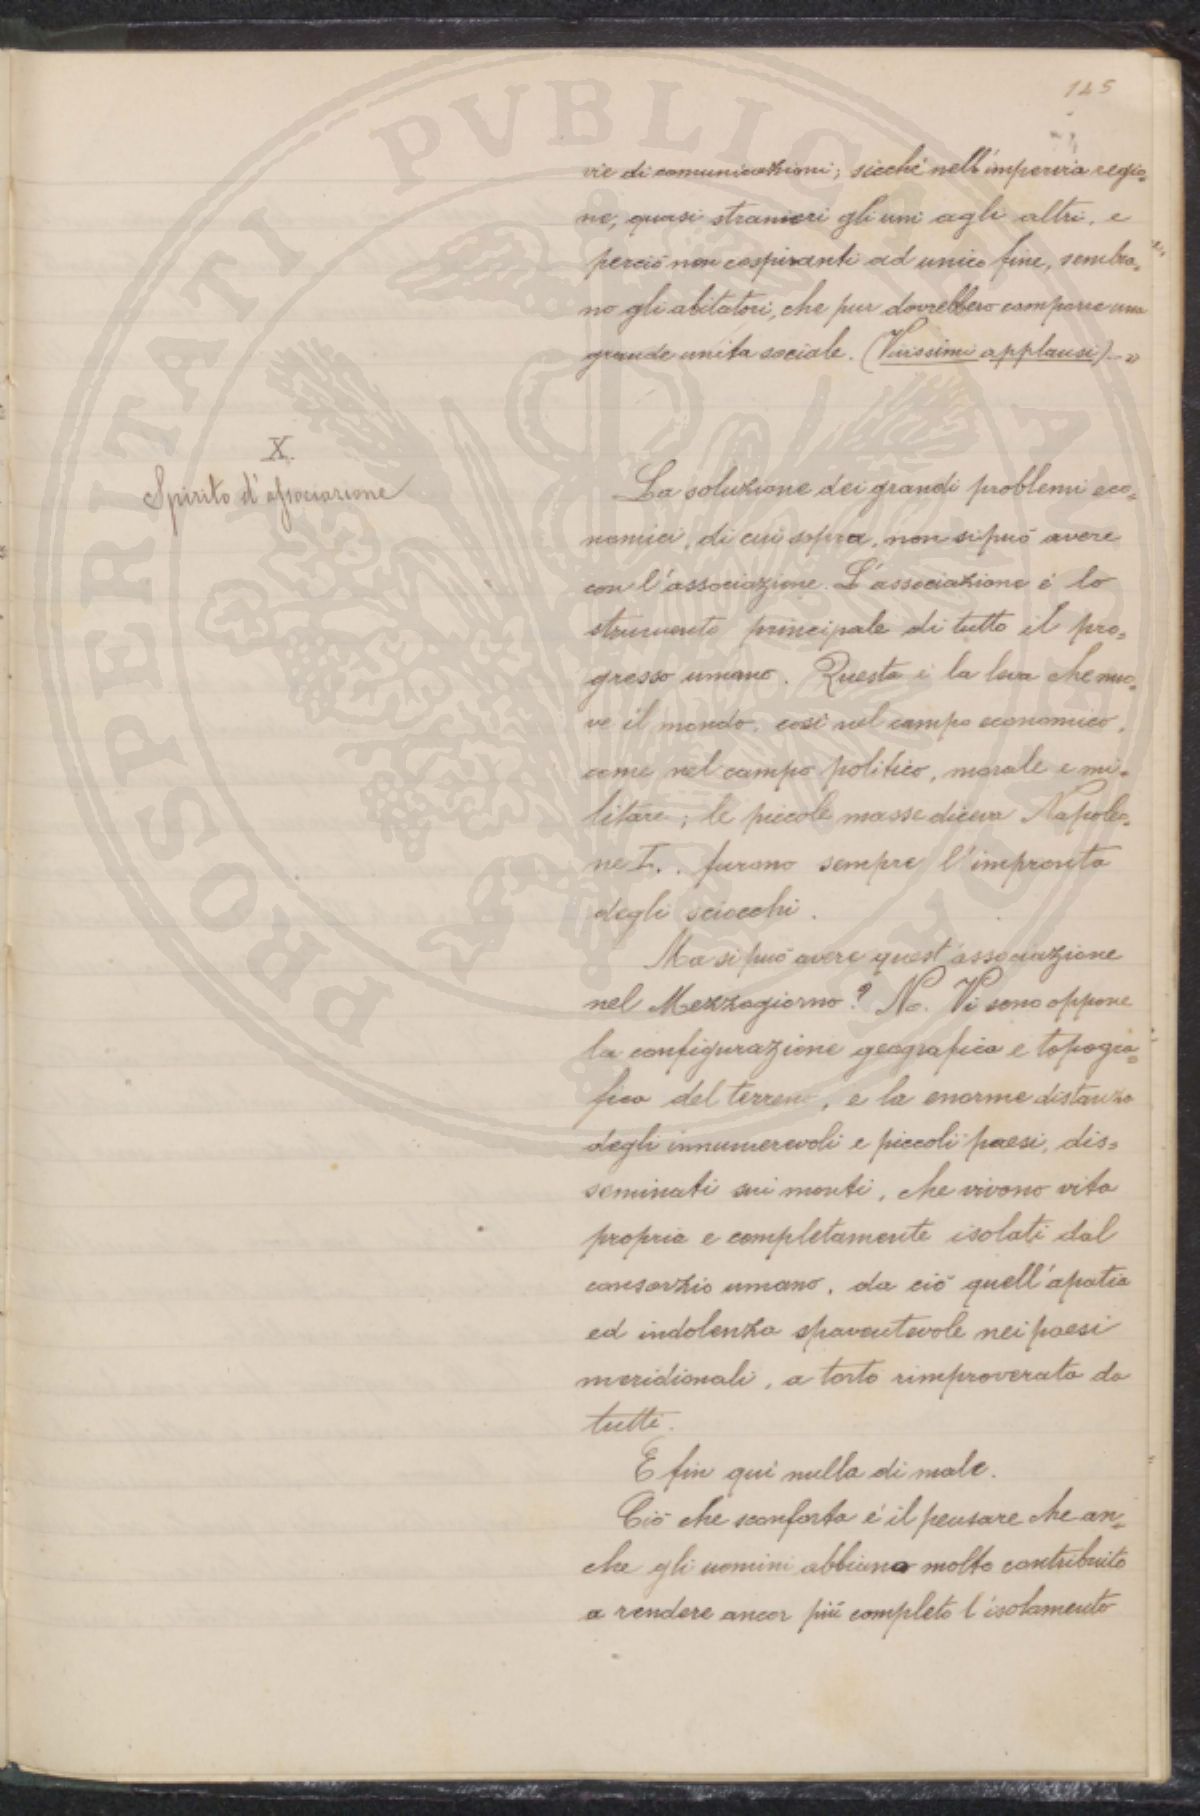 145
vie di comunicazioni; sicché nell'impervia regio=
ne, quasi stranieri gli uni agli altri, e
perciò non cospiranti ad unico fine, sembra=
no gli abitatori, che pur dovrebbero comporre una
grande unità sociale. (Vivissimi applausi) - »
X.
Spirito d'associazione
La soluzione dei grandi problemi eco=
nomici, di cui sopra, non si può avere
con l'associazione. L'associazione è lo
strumento principale di tutto il pro=
gresso umano. Questa è la leva che muo=
ve il mondo, così nel campo economico,
come nel campo politico, morale e mi=
litare; le piccole masse diceva Napoleo=
ne I., furono sempre l'impronta
degli sciocchi.
Ma si può avere quest'associazione
nel Mezzogiorno? No. Vi sono oppone
la configurazione geografica e topogra=
fica del terreno, e la enorme distanza
degli innumerevoli e piccoli paesi, dis=
seminati sui monti, che vivono vita
propria e completamente isolati dal
consorzio umano, da ciò quell'apatia
ed indolenza spaventevole nei paesi
meridionali, a torto rimproverata da
tutti.
E fin qui nulla di male.
Ciò che sconforta è il pensare che an=
che gli uomini abbiano molto contribuito
a rendere ancor più completo l'isolamento
PROSPERITATI PVBLICAE